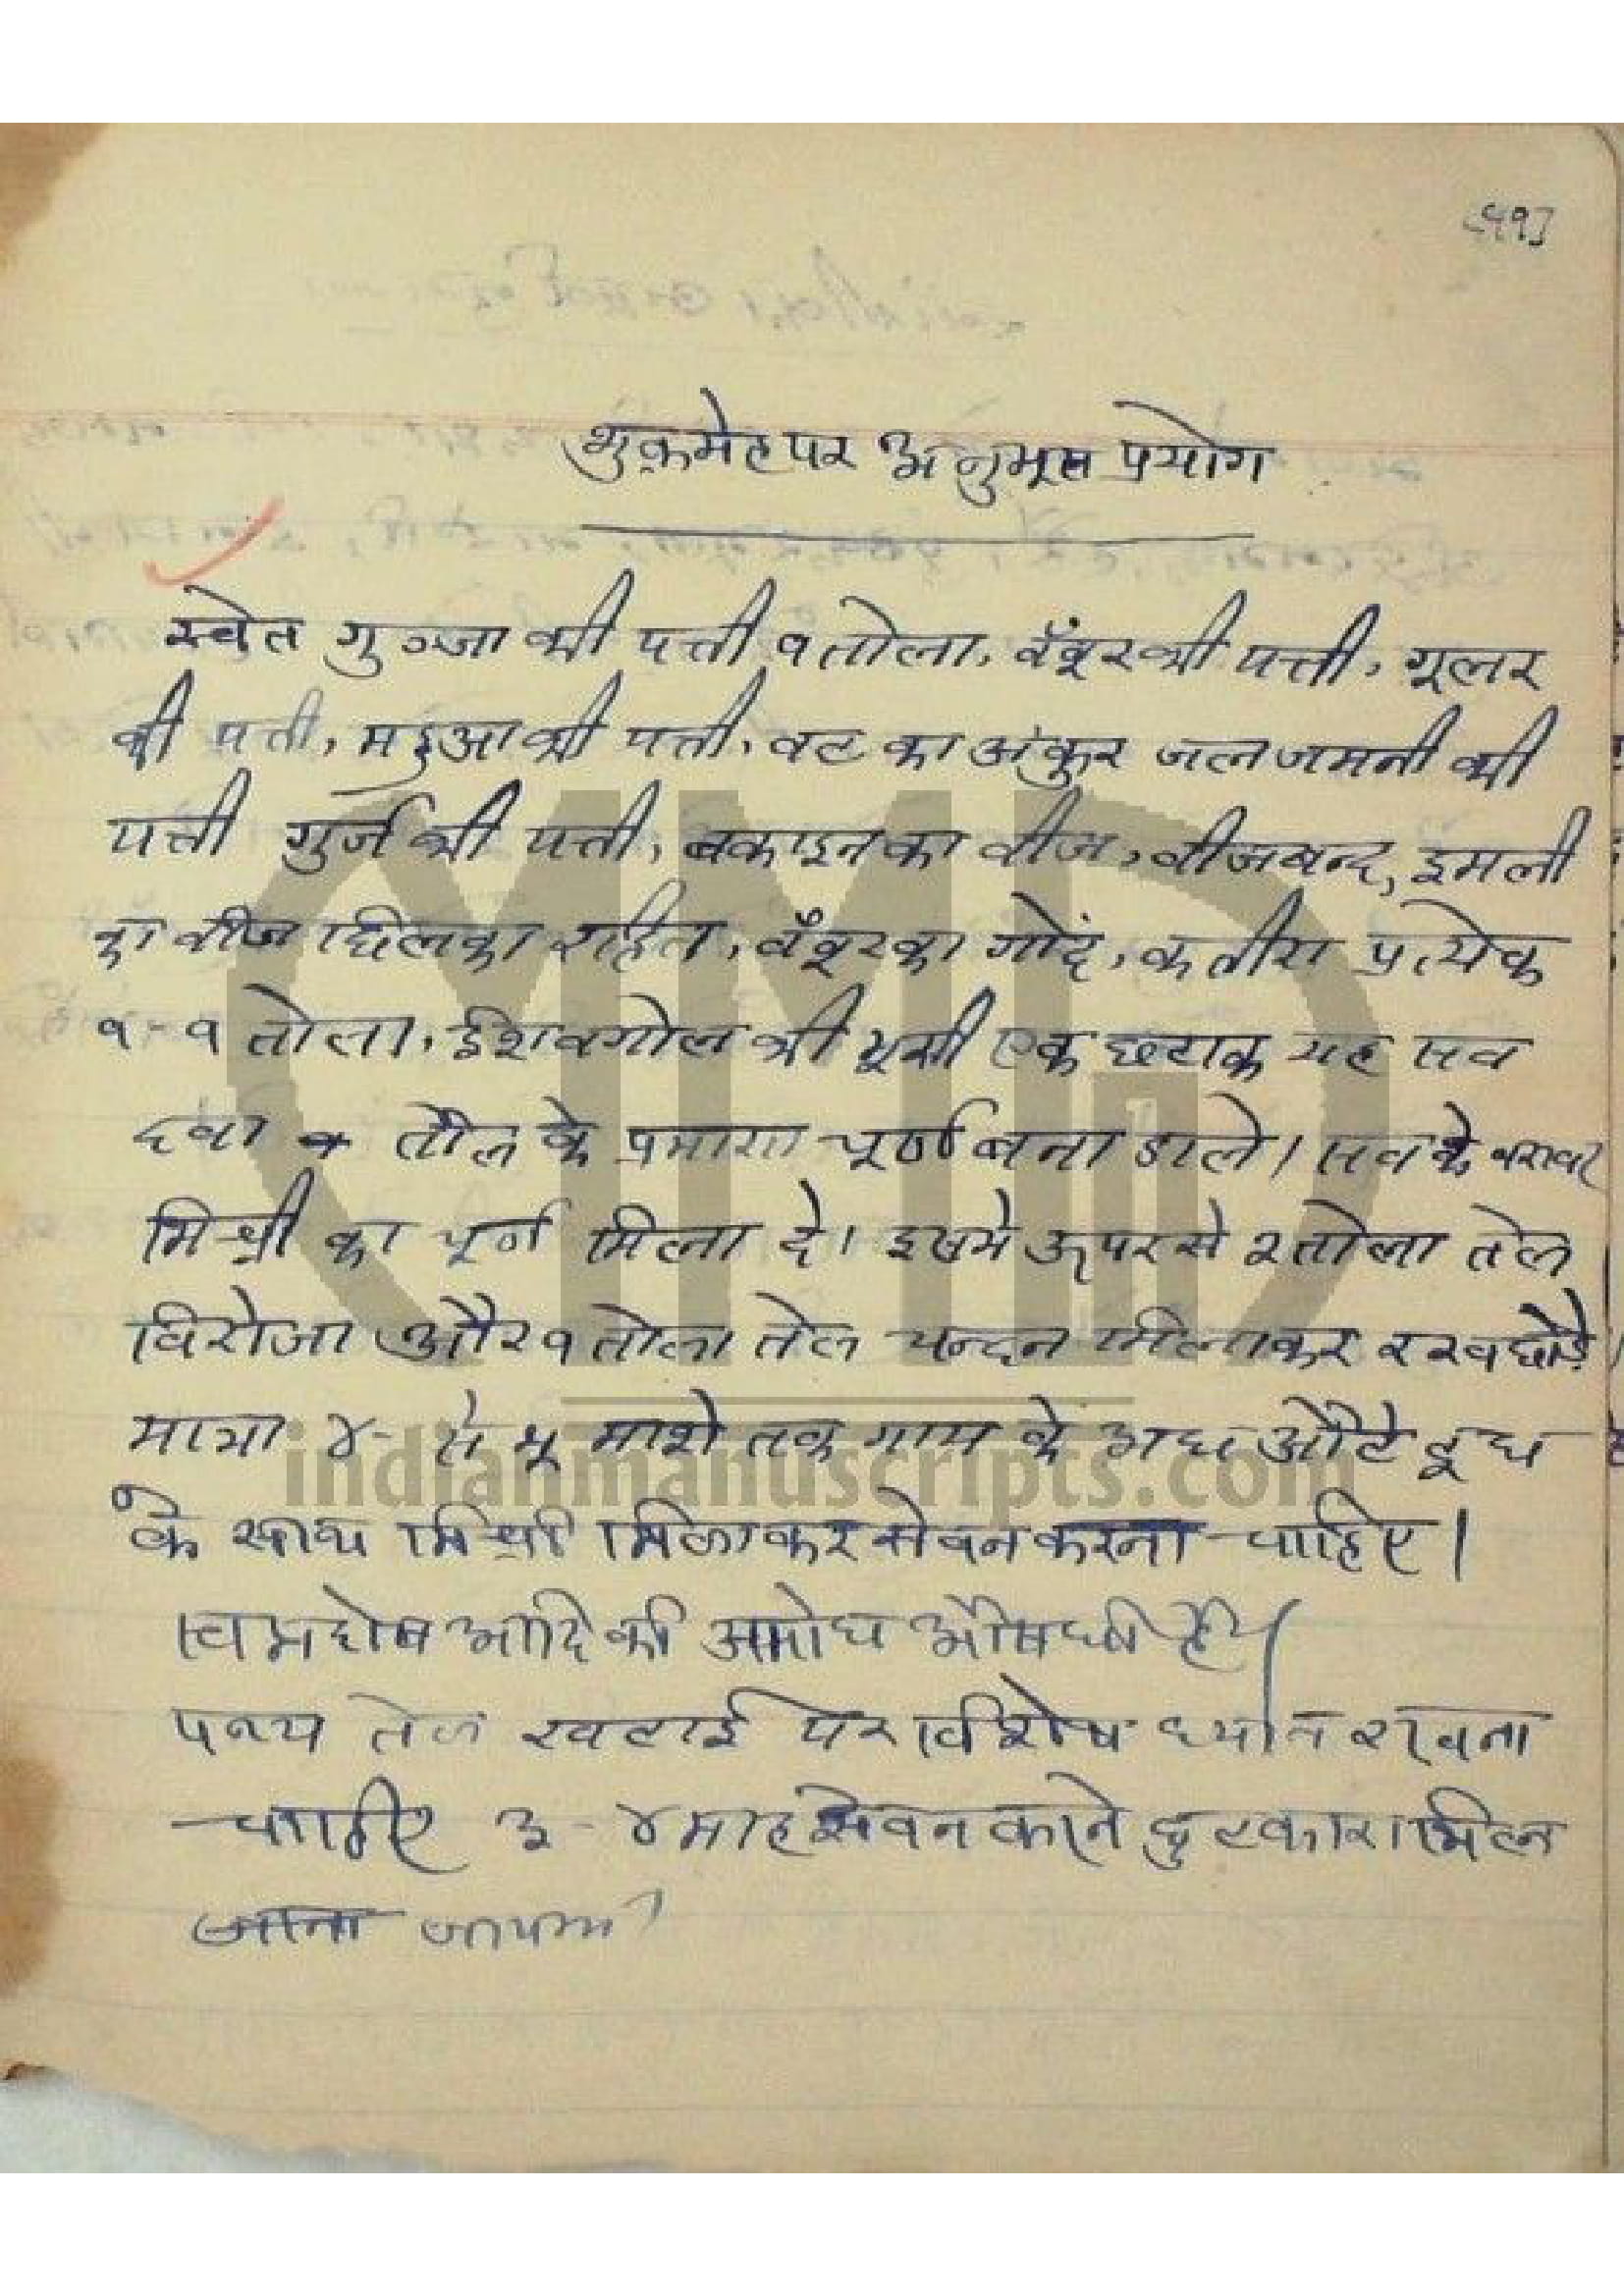 [५१]
शुक्रमेह पर अनुभूत प्रयोग
स्वेत गुञ्जा की पत्ती १ तोला, वँवूर की पत्ती, गूलर
की पत्ती, महुआ की पत्ती, वट का अंकुर जलजमनी की
पत्ती गुर्ज की पत्ती, बकाइन का वीज, वीजबन्द, इमली
का वीज छिलका रहित, वँवूर का गोंद, कतीरा प्रत्येक
१-१ तोला, ईशवगोल की भूसी एक छटाक यह सव
दवा तौल के प्रमाण चूर्ण बना डाले। सव के बरावर
मिश्री का चूर्ण मिला दे। इसमे ऊपर से २ तोला तेल
विरोजा और १ तोला तेल चन्दन मिलाकर रख छोड़े।
मात्रा ४- से ५ माशे तक गाय के अध औटे दूध
के साथ मिश्री मिलाकर सेवन करना चाहिए।
स्वप्नदोष आदि की अमोघ औषधी है।
पथ्य तेल खटाई पर विशेष ध्यान रखना
चाहिए ३-४ माह सेवन करने छुटकारा मिल
जाना जायगा
indianmanuscripts.com